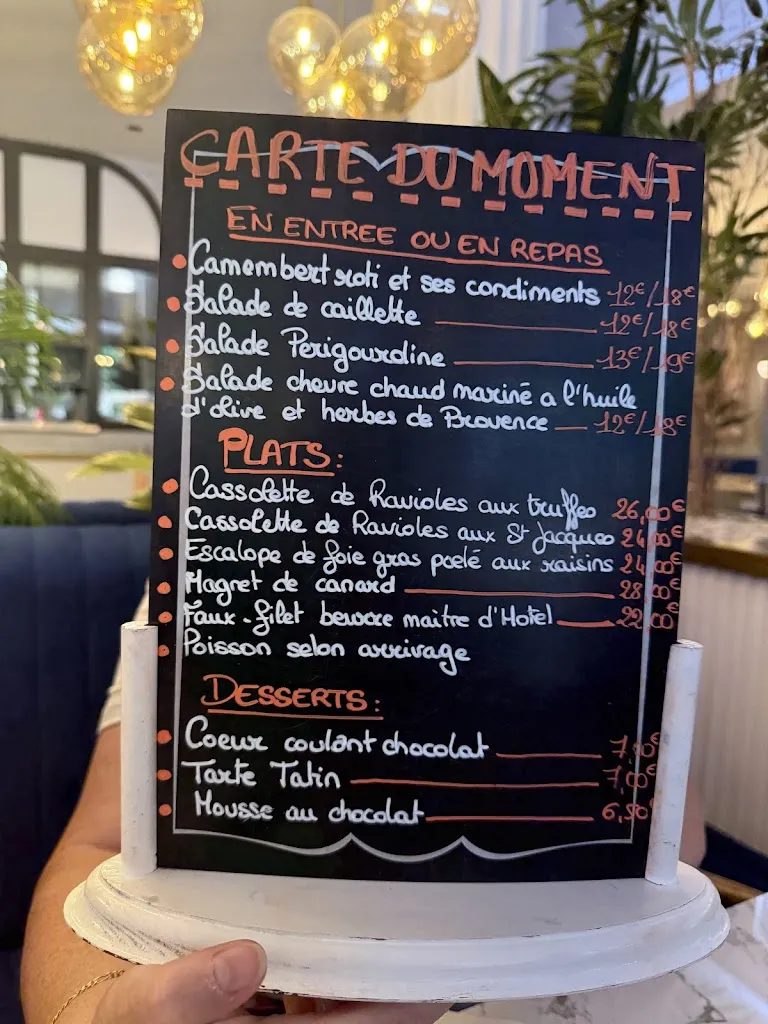 CARTE DU MOMENT
EN ENTREE OU EN REPAS
Camembert roti et ses condiments 12€/18€
Salade de caillette 12€/18€
Salade Perigourdine 13€/19€
Salade chevre chaud mariné a l'huile
d'olive et herbes de Provence 12€/18€
PLATS:
Cassolette de Ravioles aux truffes 26,00€
Cassolette de Ravioles aux St Jacques 24,00€
Escalope de foie gras poelé aux raisins 24,00€
Magret de canard 28,00€
Faux-filet beurre maitre d'Hotel 22,00€
Poisson selon arrivage
DESSERTS:
Coeur coulant chocolat 7,00€
Tarte Tatin 7,00€
Mousse au chocolat 6,50€